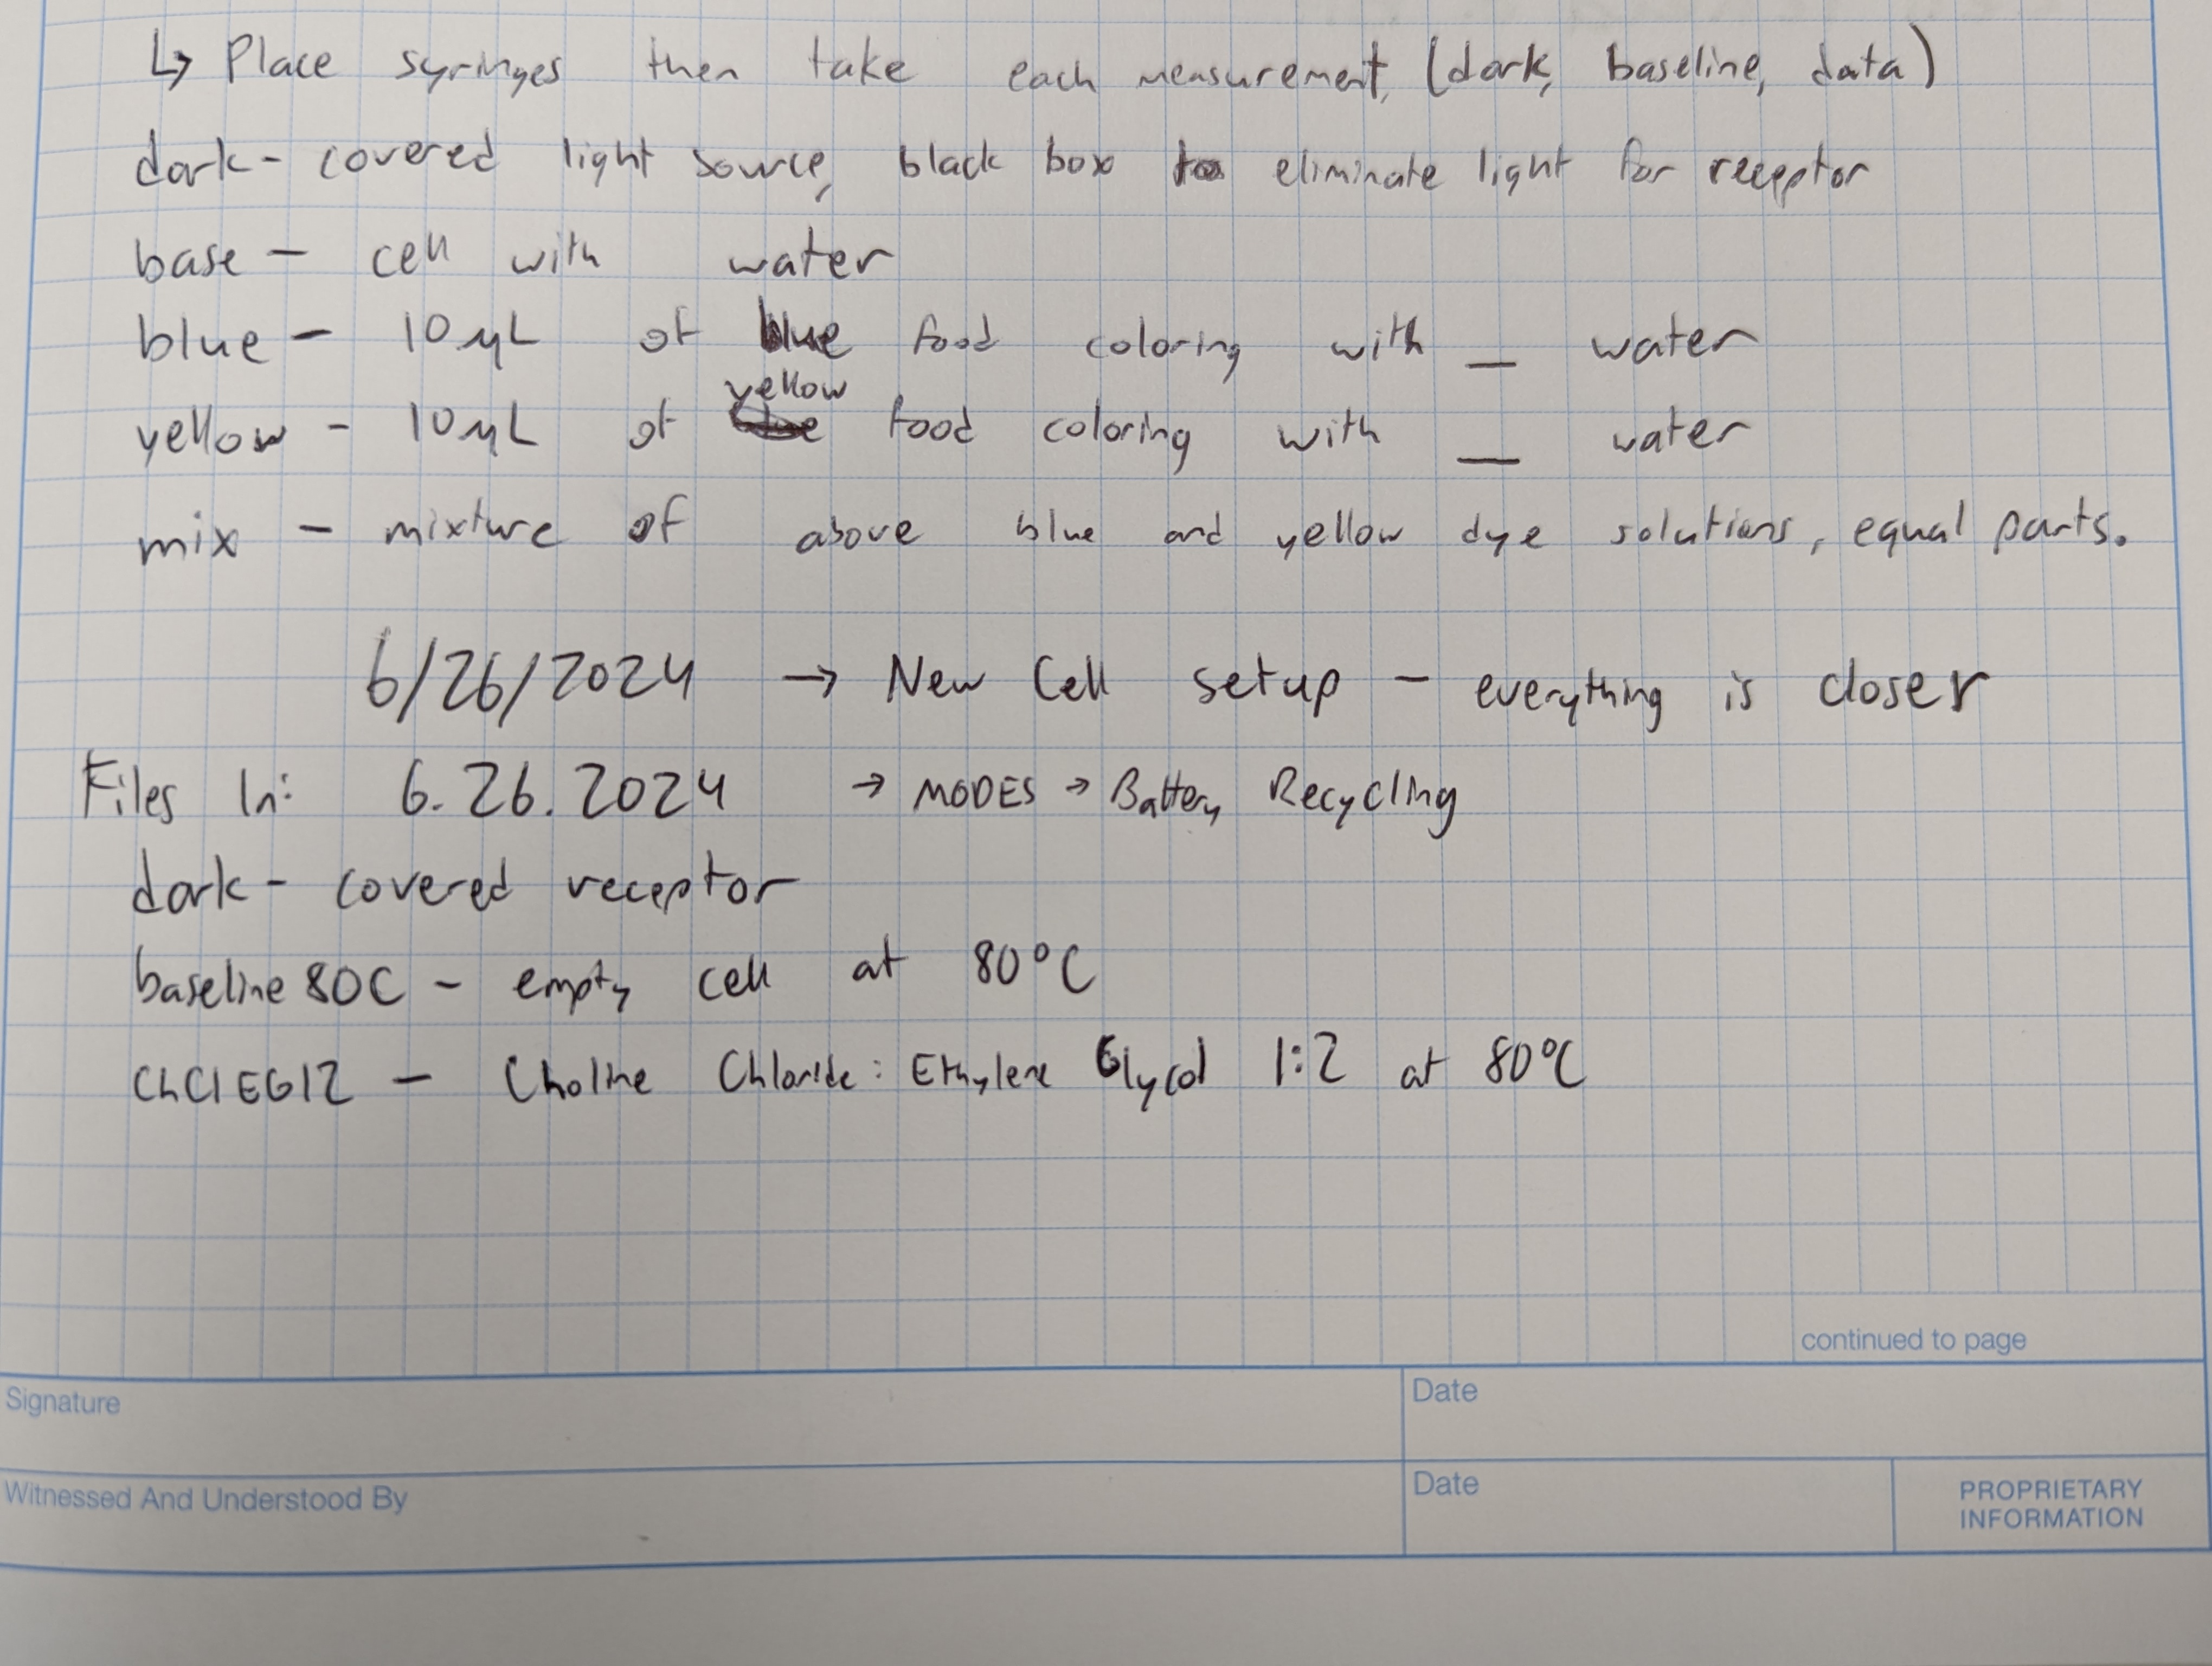 ↳ Place syringes then take each measurement, (dark, baseline, data)
dark - covered light source, black box to eliminate light for receptor
base - cell with water
blue - 10 μL of blue food coloring with _ water
yellow - 10 μL of yellow food coloring with _ water
mix - mixture of above blue and yellow dye solutions, equal parts.
6/26/2024 → New Cell setup - everything is closer
Files In: 6.26.2024 → MODES → Battery Recycling
dark - covered receptor
baseline 80C - empty cell at 80°C
ChClEG12 - Choline Chloride: Ethylene Glycol 1:2 at 80°C
continued to page
Signature Date
Witnessed And Understood By Date PROPRIETARY
INFORMATION